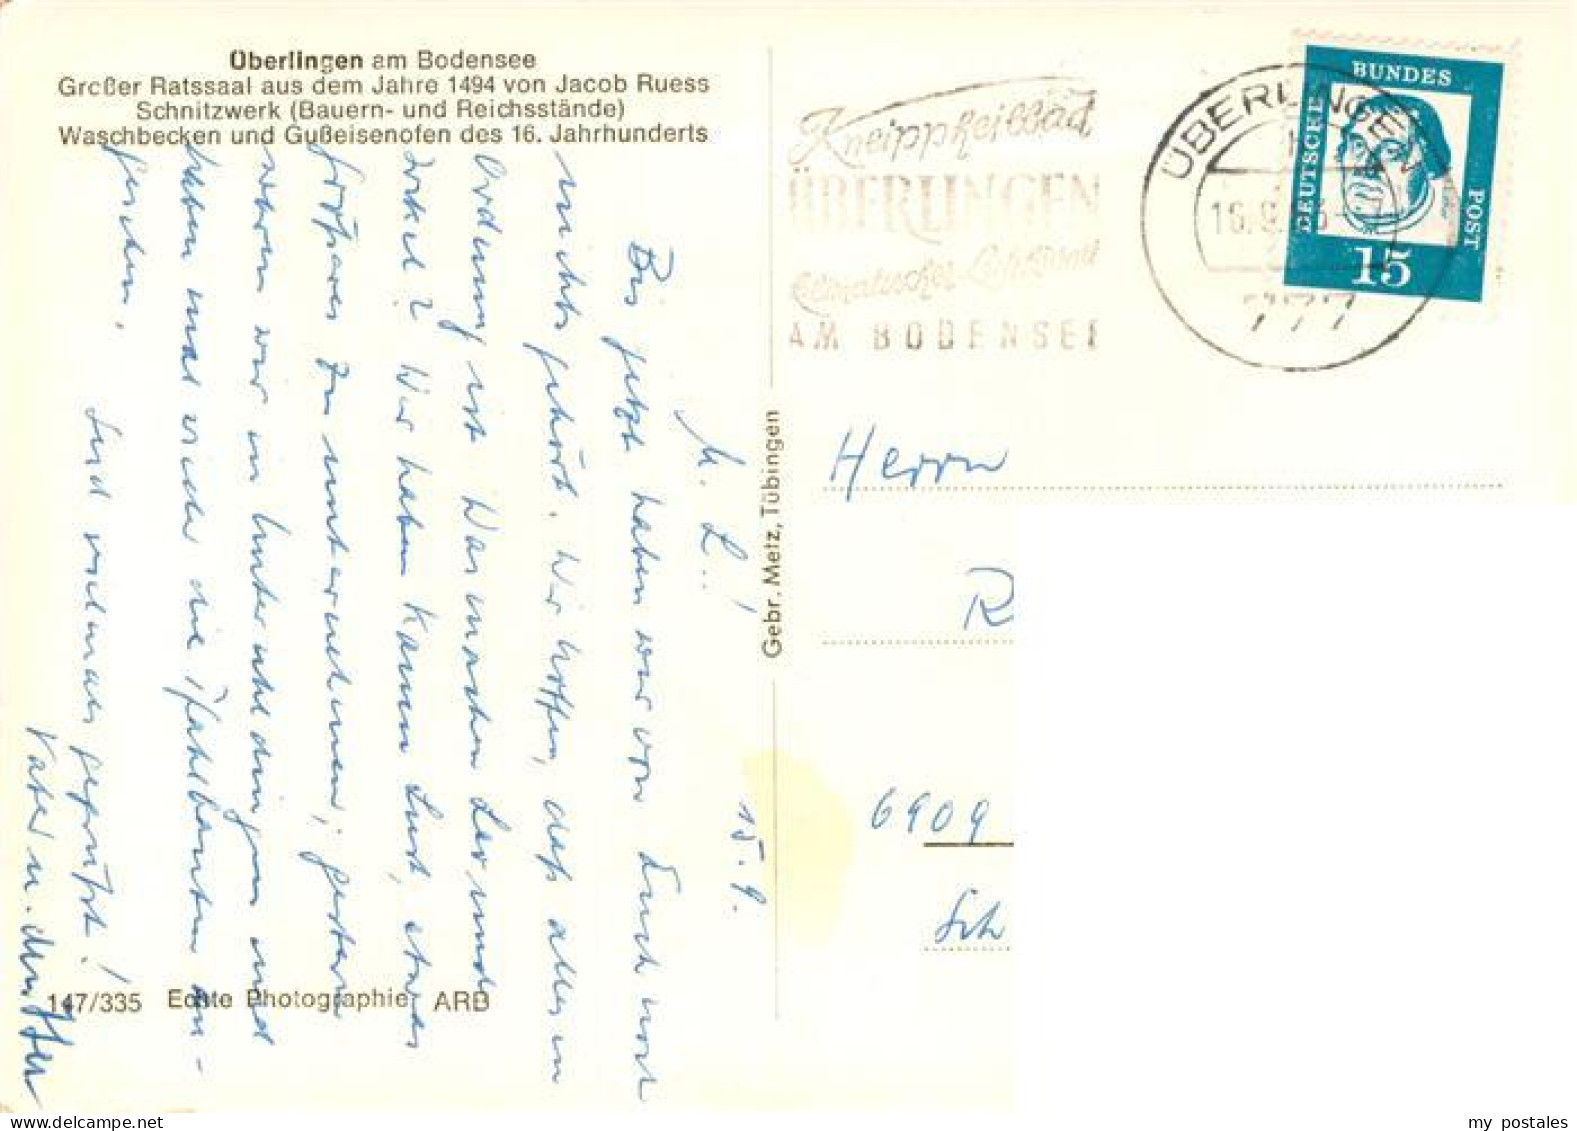 Überlingen am Bodensee
Großer Ratssaal aus dem Jahre 1494 von Jacob Ruess
Schnitzwerk (Bauern- und Reichsstände)
Waschbecken und Gußeisenofen des 16. Jahrhunderts
15. 9.
M. L.!
Bis jetzt haben wir von Euch noch
nichts gehört. Wir hoffen, daß alles in
Ordnung ist. Was machen der und
? Wir haben kaum Lust, etwas
größeres zu unternehmen; gestern
waren wir in Unteruhldingen und
haben mal wieder die Pfahlbauten an-
gesehen.
Seid vielmals gegrüßt!
Vater u. Mutter
147/335 Echte Photographie ARB
Gebr. Metz, Tübingen
Kneippheilbad
ÜBERLINGEN
Klimatischer Luftkurort
AM BODENSEE
ÜBERLINGEN
777
DEUTSCHE
BUNDES
POST
15
Herrn
R
6909
Sch
my postales